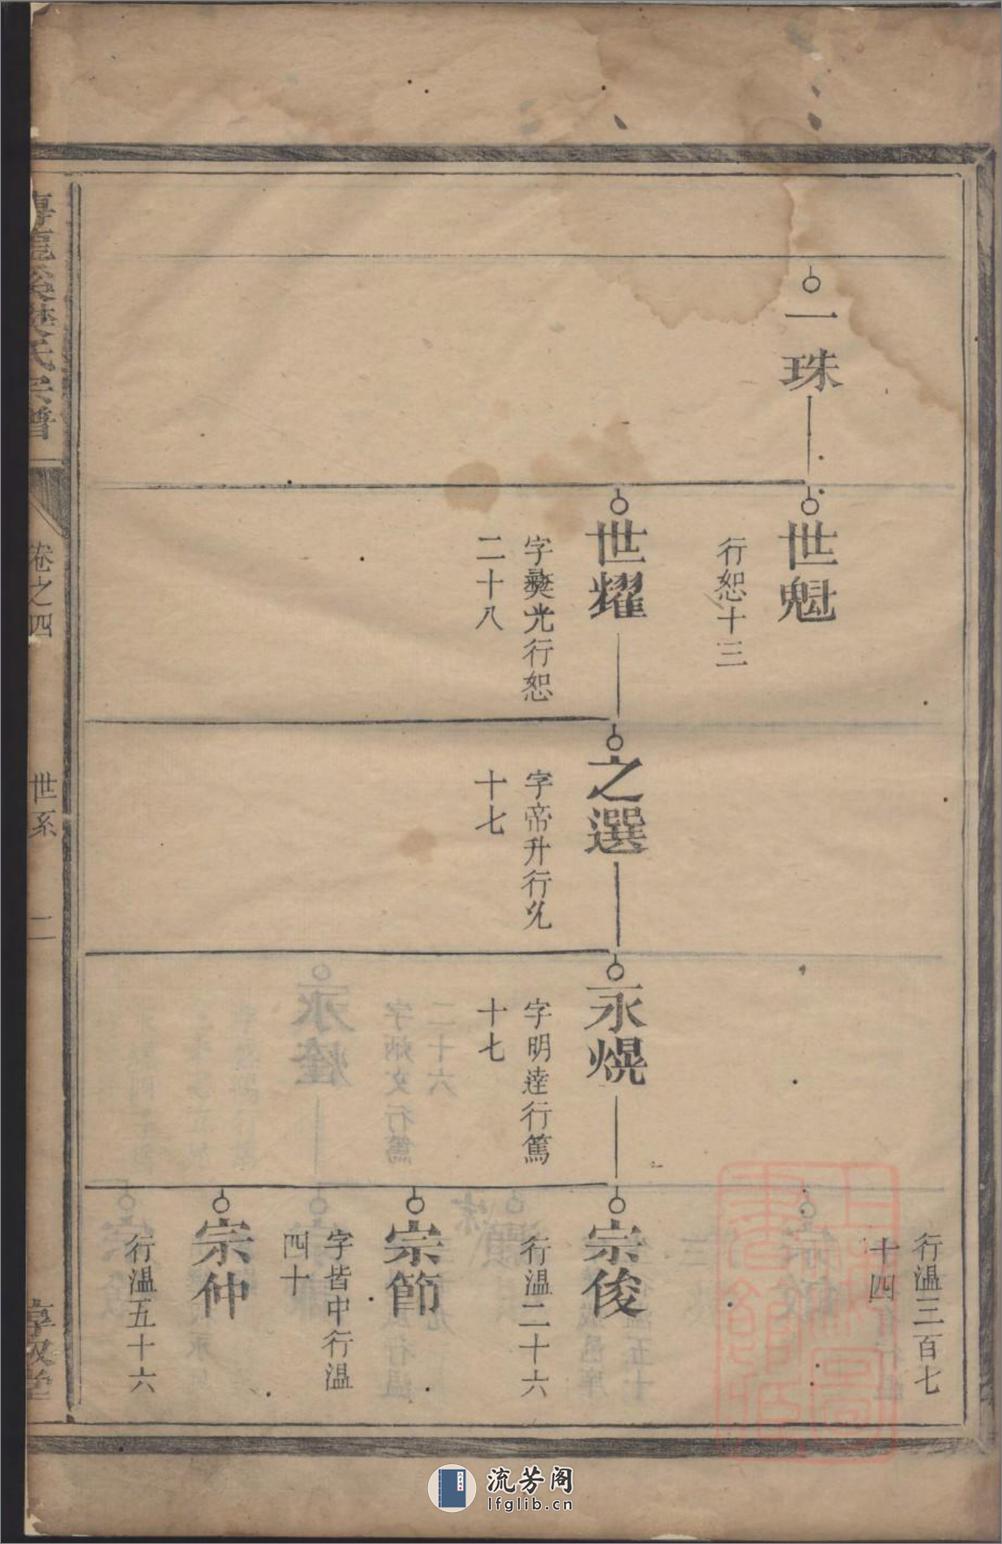 一珠
世魁
行恕十三
世耀
字燮光行恕
二十八
之選
字帝升行允
十七
永熀
字明達行篤
十七
行温三百七
十四
宗俊
行温二十六
宗節
字皆中行温
四十
宗仲
行温五十六
氏宗譜
卷之四
世系
二
流芳阁
lfglib.cn